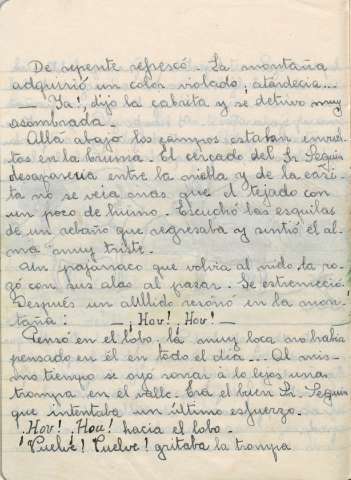 De repente refrescó. La montaña
adquirió un color violado, atardecia...
— Ya!, dijo la cabrita y se detuvo muy
asombrada.
Allá abajo los campos estaban envuel
tos en la bruma. El cercado del Sr. Seguin
desaparecia entre la niebla y de la casi
ta no se veia mas que el tejado con
un poco de humo. Escuchó las esquilas
de un rebaño que regresaba y sintió el al-
ma muy triste.
Un pajarraco que volvia al nido la ro-
zó con sus alas al pasar. Se estremeció.
Después un aullido resonó en la mon-
taña: — ¡Hou! ¡Hou! —
Pensó en el lobo, la muy loca no habia
pensado en él en todo el dia... Al mis-
mo tiempo se oyó sonar á lo lejos una
trompa en el valle. Era el buen Sr. Seguin
que intentaba un último esfuerzo.
¡Hou! ¡Hou! hacia el lobo.
¡Vuelve! ¡Vuelve! gritaba la trompa